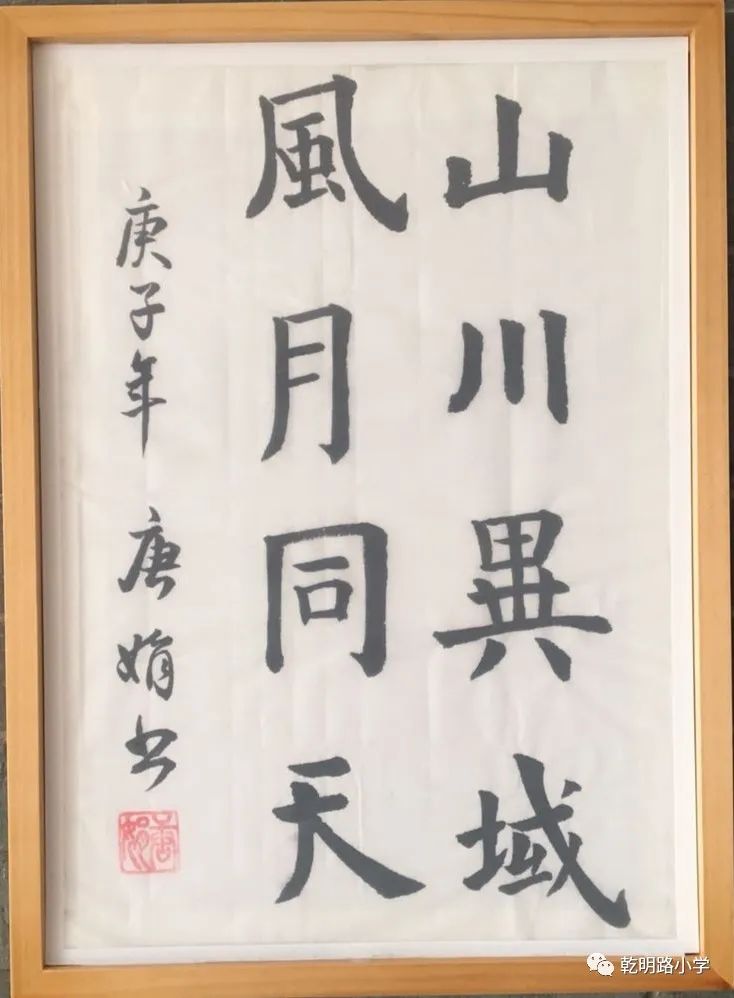 山川異域
風月同天
庚子年 唐娟书
唐娟
乾明路小学